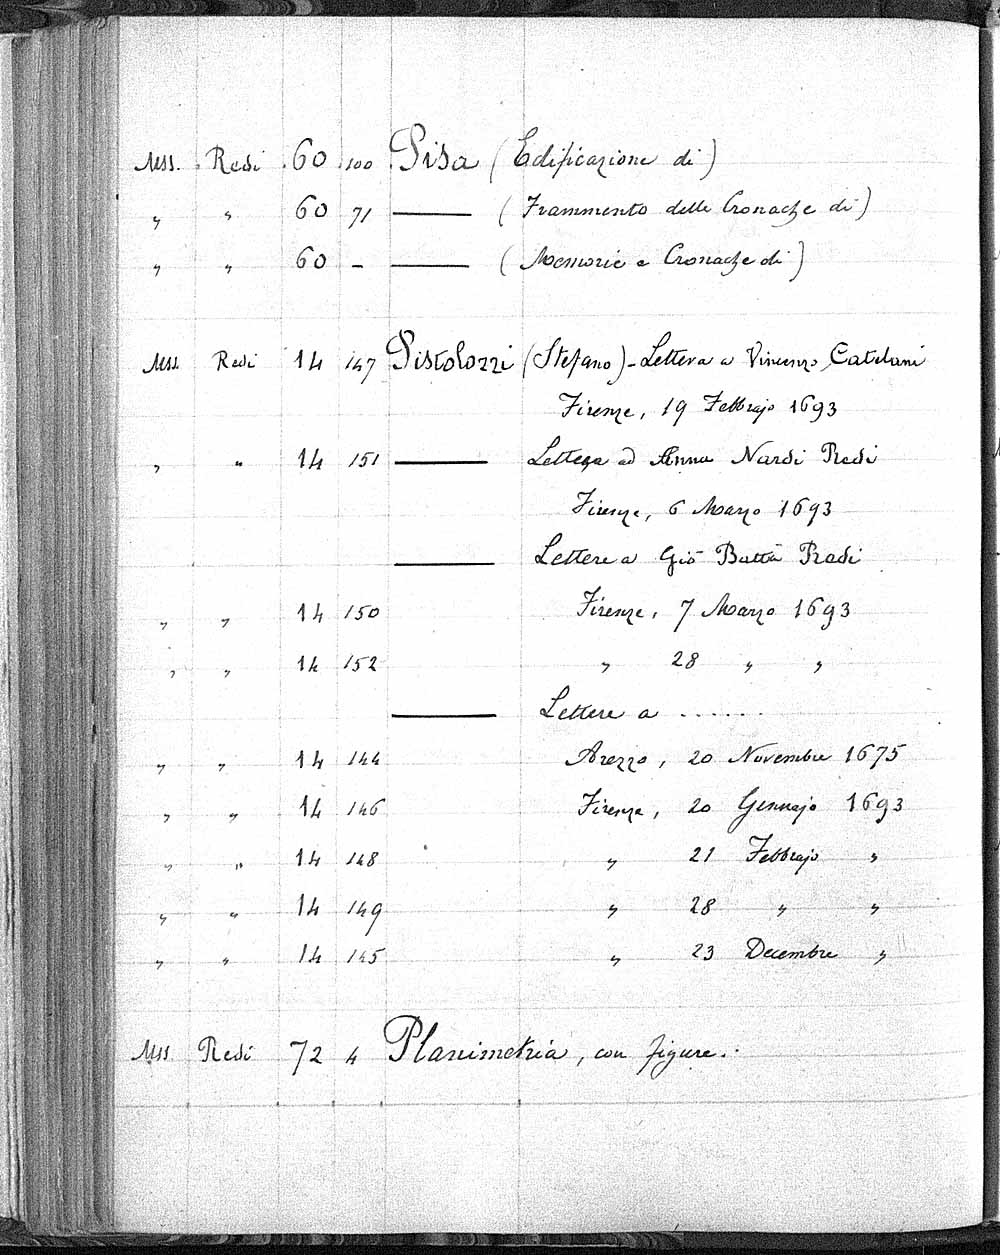 Mss. Redi 60 100 Pisa (Edificazione di)
„ „ 60 71 —— (Frammento delle Cronache di)
„ „ 60 - —— (Memorie e Cronache di)
Mss. Redi 14 147 Pistolozzi (Stefano) - Lettera a Vincenzo Catelani
Firenze, 19 Febbrajo 1693
„ „ 14 151 —— Lettera ad Anna Nardi Redi
Firenze, 6 Marzo 1693
—— Lettere a Gio Batta Redi
„ „ 14 150 Firenze, 7 Marzo 1693
„ „ 14 152 „ 28 „ „
—— Lettere a ......
„ „ 14 144 Arezzo, 20 Novembre 1675
„ „ 14 146 Firenze, 20 Gennajo 1693
„ „ 14 148 „ 21 Febbrajo „
„ „ 14 149 „ 28 „ „
„ „ 14 145 „ 23 Decembre „
Mss Redi 72 4 Planimetria, con figure.